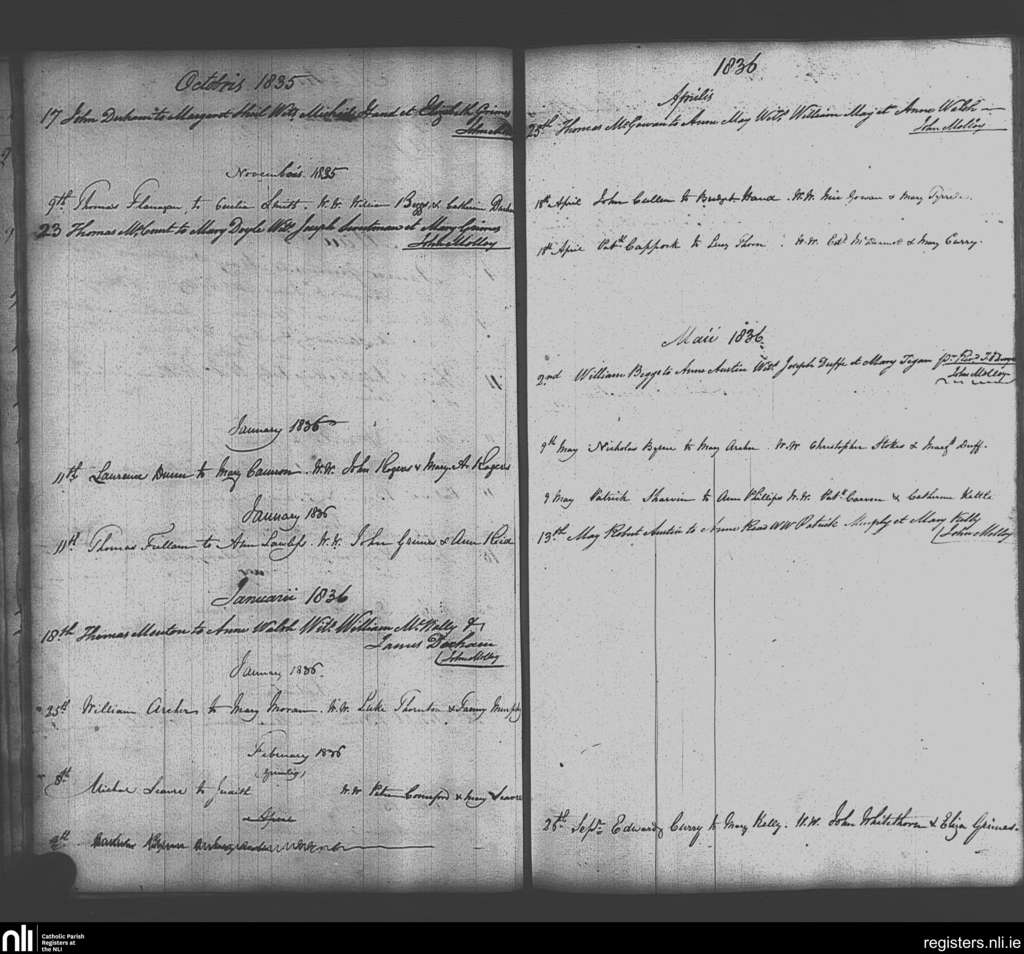 Octobris 1835
17 John Derham to Margaret Shiel Wits Michail Hand et Elizabeth Grimes
John
November 1835
9th Thomas Flanagan to Smith. W.W. William Beggs & Catherine
23 Thomas McCourt to Mary Doyle Wits Joseph Sweetman et Mary Grimes
John Molloy
January 1836
11th Laurence Dunn to Mary Cameron. W.W. John Rogers & Mary A. Rogers
January 1836
11th Thomas Fullam to Ann Lawless W.W. John Grimes & Ann Reid
Januarii 1836
18th Thomas Menton to Anne Walsh Wits William McNally &
James Derham
John Molloy
January 1836.
25th William Archer to Mary Moran. W.W. Luke Thornton & Fanny Murphy
February 1836
8th Michal Seaver to W.W. Peter & Mary Seaver
8th
1836
Aprilis
25th Thomas McGowan to Anne May Wits William May et Anne Walsh
John Molloy
18th April John Cullen to Bridget Hand W.W. Gowan & Mary
18th April Patk Cappock to Lucy W.W. Edd McDermot & Mary Curry.
Maii 1836
2nd William Beggs to Anne Austin Wits Joseph Duffe et Mary Tegan pr Revd
John Molloy
9th May Nicholas Byrne to Mary Archer W.W. Christopher Stokes & Margt Duff.
9 May Patrick to Ann Phillips W.W. Patk & Catherine Kettle
13th May Robert Austin to Anne WW Patrick Murphy et Mary Kelly
John Molloy
26th Sepr Edward Curry to Mary Kelly. W.W. John Whitethorn & Eliza Grimes.
nli
Catholic Parish
Registers at
the NLI
registers.nli.ie